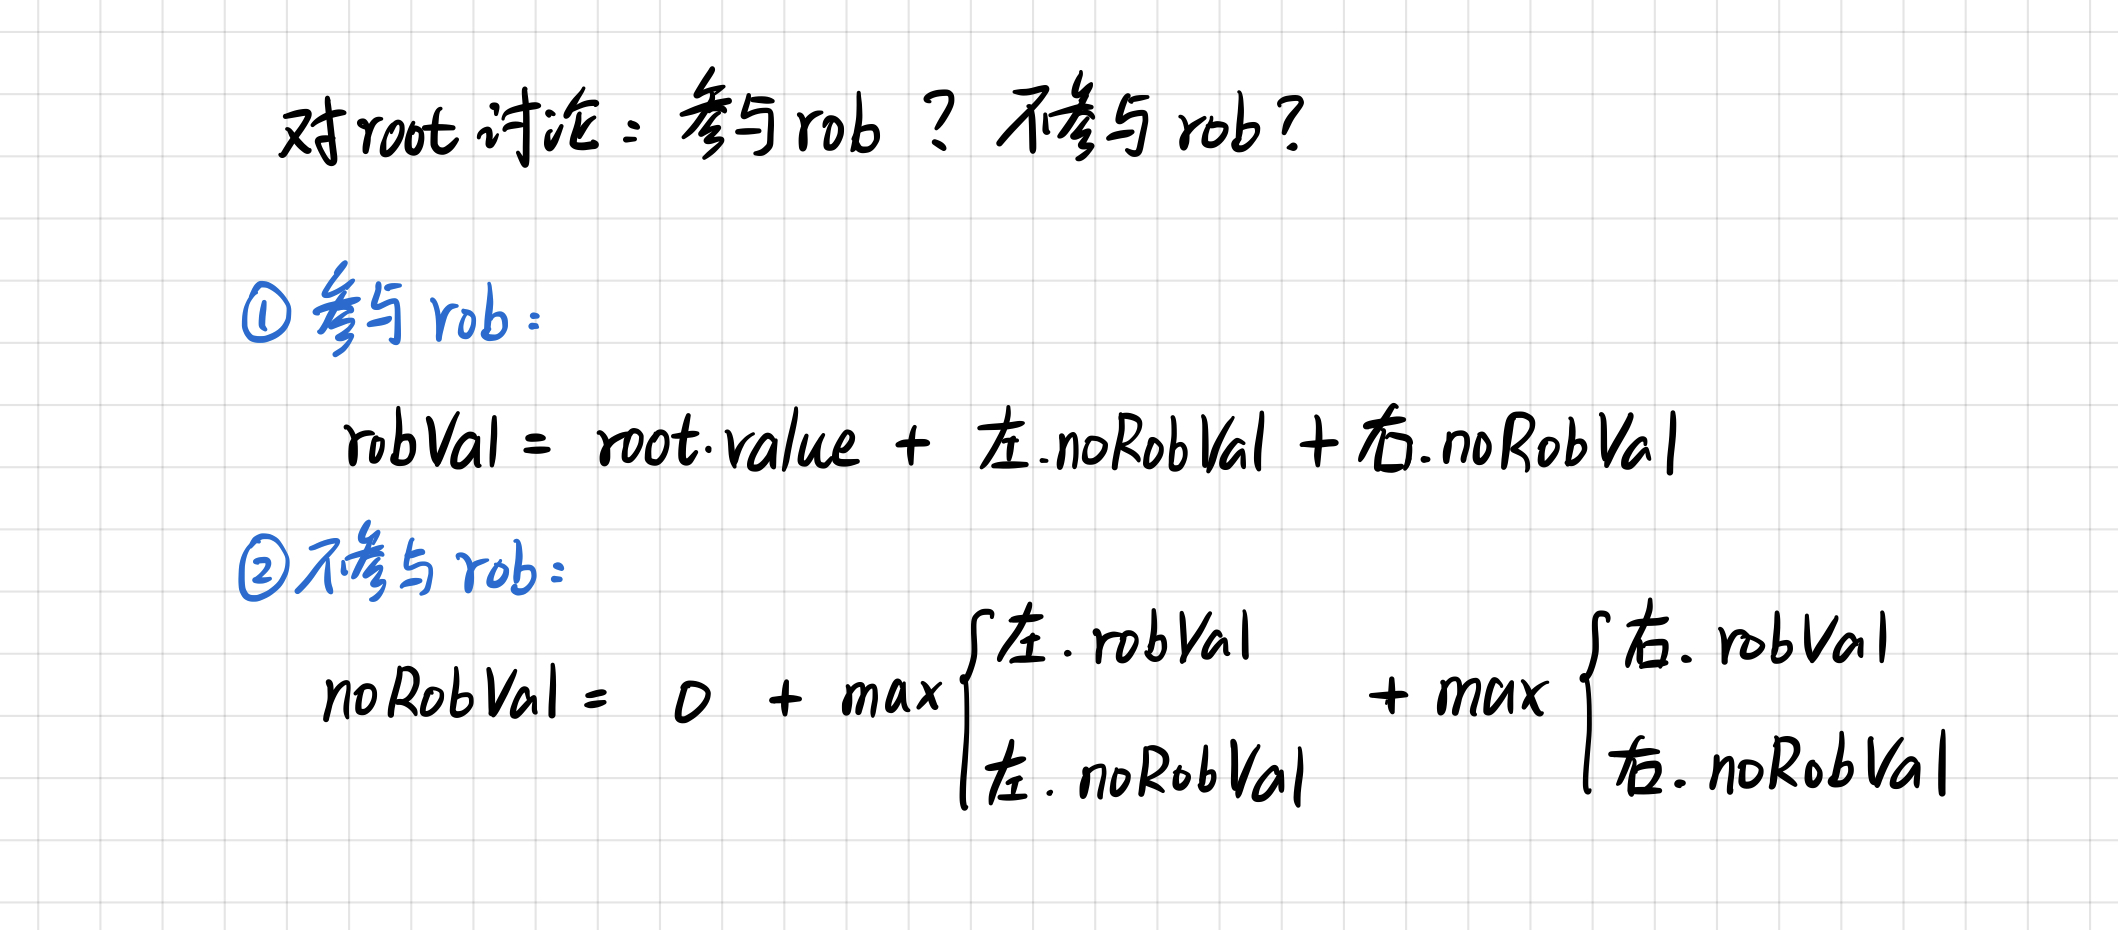 对root讨论：参与rob？不参与rob？
① 参与rob：
robVal = root.value + 左.noRobVal + 右.noRobVal
② 不参与rob：
noRobVal = 0 + max { 左.robVal 左.noRobVal + max { 右.robVal 右.noRobVal